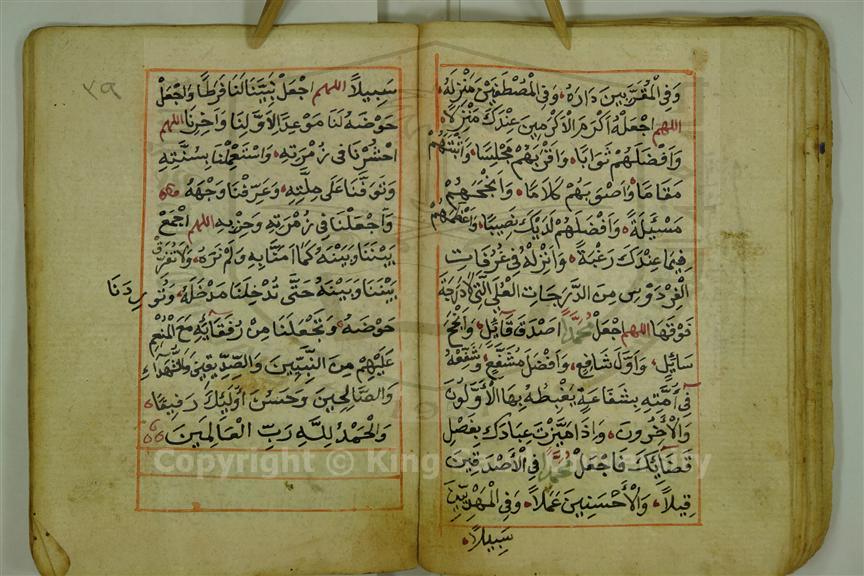 وَفِي الْمُقَرَّبِينَ دَارَهُ وَفِي الْمُصْطَفَيْنَ مَنْزِلَهُ
اللهم اجْعَلْهُ أَكْرَمَ الْأَكْرَمِينَ عِنْدَكَ مَنْزِلًا
وَأَفْضَلَهُمْ ثَوَابًا وَأَقْرَبَهُمْ مَجْلِسًا وَأَثْبَتَهُمْ
مَقَامًا وَأَصْوَبَهُمْ كَلَامًا وَأَنْجَحَهُمْ
مَسْئَلَةً وَأَفْضَلَهُمْ لَدَيْكَ نَصِيبًا وَأَعْظَمَهُمْ
فِيمَا عِنْدَكَ رَغْبَةً وَأَنْزِلْهُ فِي غُرُفَاتِ
الْفِرْدَوْسِ مِنَ الدَّرَجَاتِ الْعُلَى الَّتِي لَا دَرَجَةَ
فَوْقَهَا اللهم اجْعَلْ مُحَمَّدًا أَصْدَقَ قَآئِلٍ وَأَنْجَحَ
سَائِلٍ وَأَوَّلَ شَافِعٍ وَأَفْضَلَ مُشَفَّعٍ وَشَفِّعْهُ
فِي أُمَّتِهِ بِشَفَاعَةٍ يَغْبِطُهُ بِهَا الْأَوَّلُونَ
وَالْآخِرُونَ وَإِذَا مَيَّزْتَ عِبَادَكَ بِفَصْلِ
قَضَآئِكَ فَاجْعَلْ مُحَمَّدًا فِي الْأَصْدَقِينَ
قِيلًا وَالْأَحْسَنِينَ عَمَلًا وَفِي الْمَهْدِيِّينَ
سَبِيلًا
٢٩
سَبِيلًا اللهم اجْعَلْ نَبِيَّنَا لَنَا فَرَطًا وَاجْعَلْ
حَوْضَهُ لَنَا مَوْعِدًا لِأَوَّلِنَا وَآخِرِنَا اللهم
احْشُرْنَا فِي زُمْرَتِهِ وَاسْتَعْمِلْنَا بِسُنَّتِهِ
وَتَوَفَّنَا عَلَى مِلَّتِهِ وَعَرِّفْنَا وَجْهَهُ
وَاجْعَلْنَا فِي زُمْرَتِهِ وَحِزْبِهِ اللهم اجْمَعْ
بَيْنَنَا وَبَيْنَهُ كَمَا آمَنَّا بِهِ وَلَمْ نَرَهُ وَلَا تُفَرِّقْ
بَيْنَنَا وَبَيْنَهُ حَتَّى تُدْخِلَنَا مَدْخَلَهُ وَتُورِدَنَا
حَوْضَهُ وَتَجْعَلَنَا مِنْ رُفَقَآئِهِ مَعَ الْمُنْعَمِ
عَلَيْهِمْ مِنَ النَّبِيِّينَ وَالصِّدِّيقِينَ وَالشُّهَدَاءِ
وَالصَّالِحِينَ وَحَسُنَ أُولَئِكَ رَفِيقًا
وَالْحَمْدُ لِلَّهِ رَبِّ الْعَالَمِينَ
Copyright © King